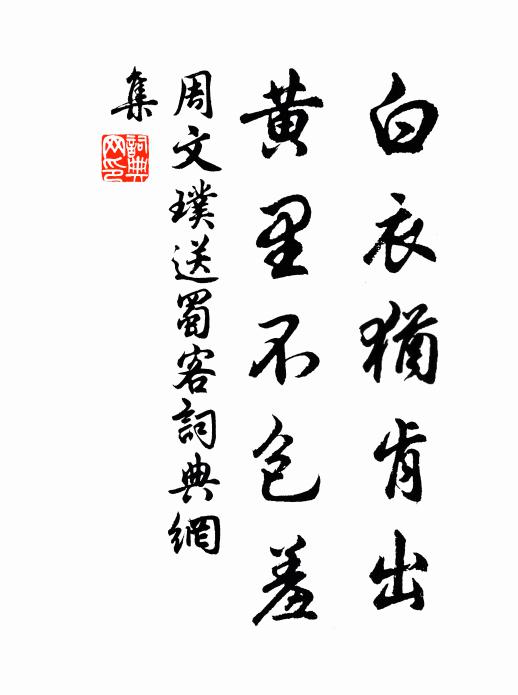 白衣猶肯出
黃里不包羞
周文璞送蜀客詞典網
集
詞典
网印